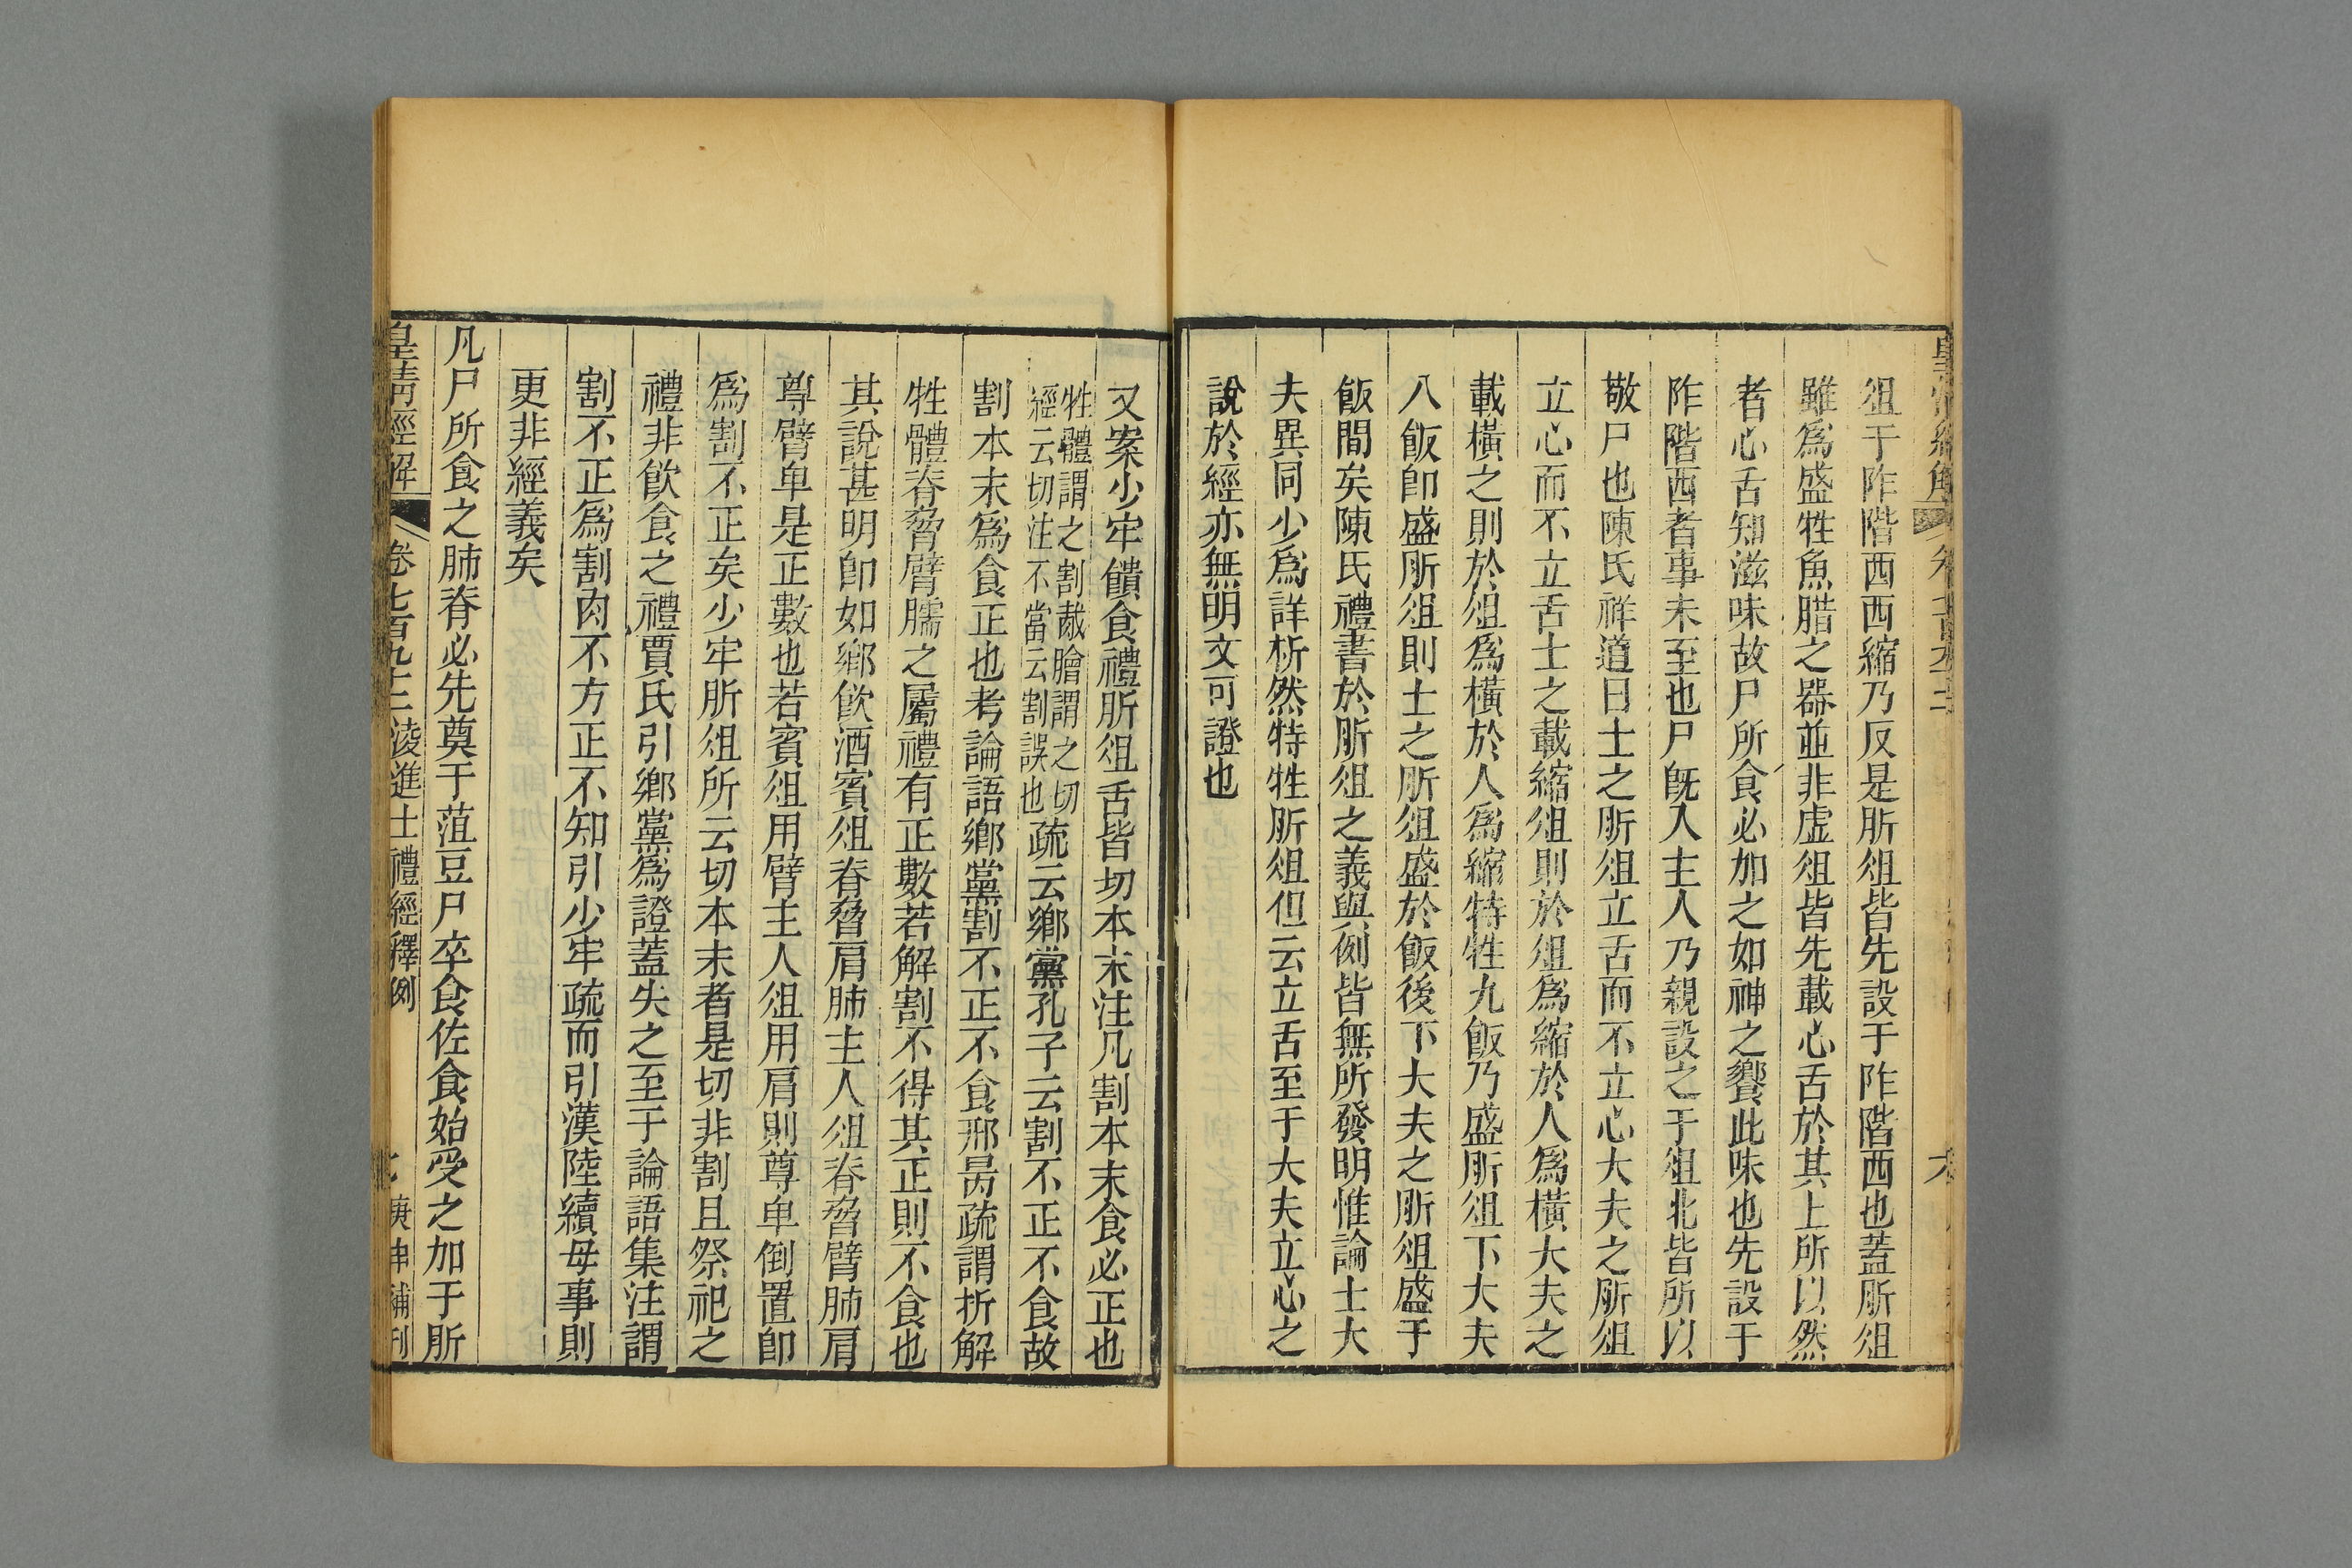 俎于阼階西西縮乃反是肵俎皆先設于阼階西也蓋肵俎
雖爲盛牲魚腊之器並非虚俎皆先載心舌於其上所以然
者心舌知滋味故尸所食必加之如神之饗此味也先設于
阼階西者事未至也尸旣入主人乃親設之于俎北皆所以
敬尸也陳氏祥道曰士之肵俎立舌而不立心大夫之肵俎
立心而不立舌士之載縮俎則於俎爲縮於人爲橫大夫之
載橫之則於俎爲橫於人爲縮特牲九飯乃盛肵俎下大夫
八飯卽盛肵俎則士之肵俎盛於飯後下大夫之肵俎盛于
飯間矣陳氏禮書於肵俎之義與例皆無所發明惟論士大
夫異同少爲詳析然特牲肵俎但云立舌至于大夫立心之
說於經亦無明文可證也
又案少牢饋食禮肵俎舌皆切本末注凡割本末食必正也
牲體謂之割胾膾謂之切
經云切注不當云割誤也疏云鄉黨孔子云割不正不食故
割本末爲食正也考論語鄉黨割不正不食邢昺疏謂折解
牲體脊脅臂臑之屬禮有正數若解割不得其正則不食也
其說甚明卽如鄉飲酒賓俎脊脅肩肺主人俎脊脅臂肺肩
尊臂卑是正數也若賓俎用臂主人俎用肩則尊卑倒置卽
爲割不正矣少牢肵俎所云切本末者是切非割且祭祀之
禮非飲食之禮賈氏引鄉黨爲證蓋失之至于論語集注謂
割不正爲割肉不方正不知引少牢疏而引漢陸續母事則
更非經義矣
凡尸所食之肺脊必先奠于菹豆尸卒食佐食始受之加于肵
皇清經解 卷七百九十二 淩進士禮經釋例 庚申補刊